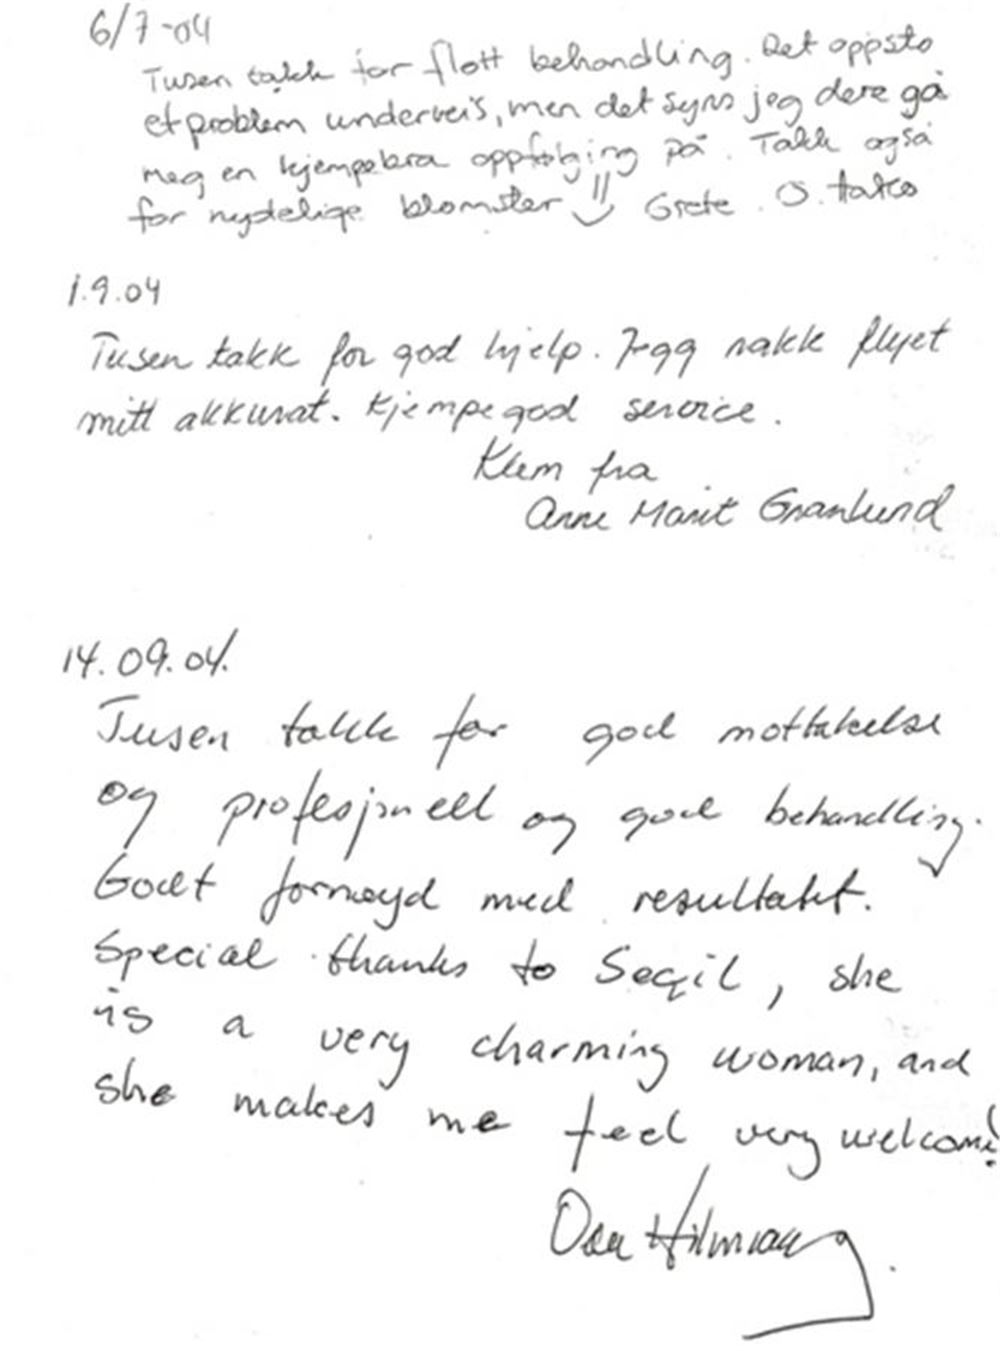 6/7-04
Tusen takk for flott behandling. Det oppsto
et problem underveis, men det syns jeg dere ga
meg en kjempebra oppfølging på. Takk også
for nydelige blomster Grete
1.9.04
Tusen takk for god hjelp. Jegg nakk flyet
mitt akkurat. Kjempegod service.
Klem fra
Anne Marit Granlund
14.09.04.
Tusen takk for god mottakelse
og profesjonell og god behandling.
Godt fornøyd med resultatet.
Special thanks to Seçil, she
is a very charming woman, and
she makes me feel very welcome!